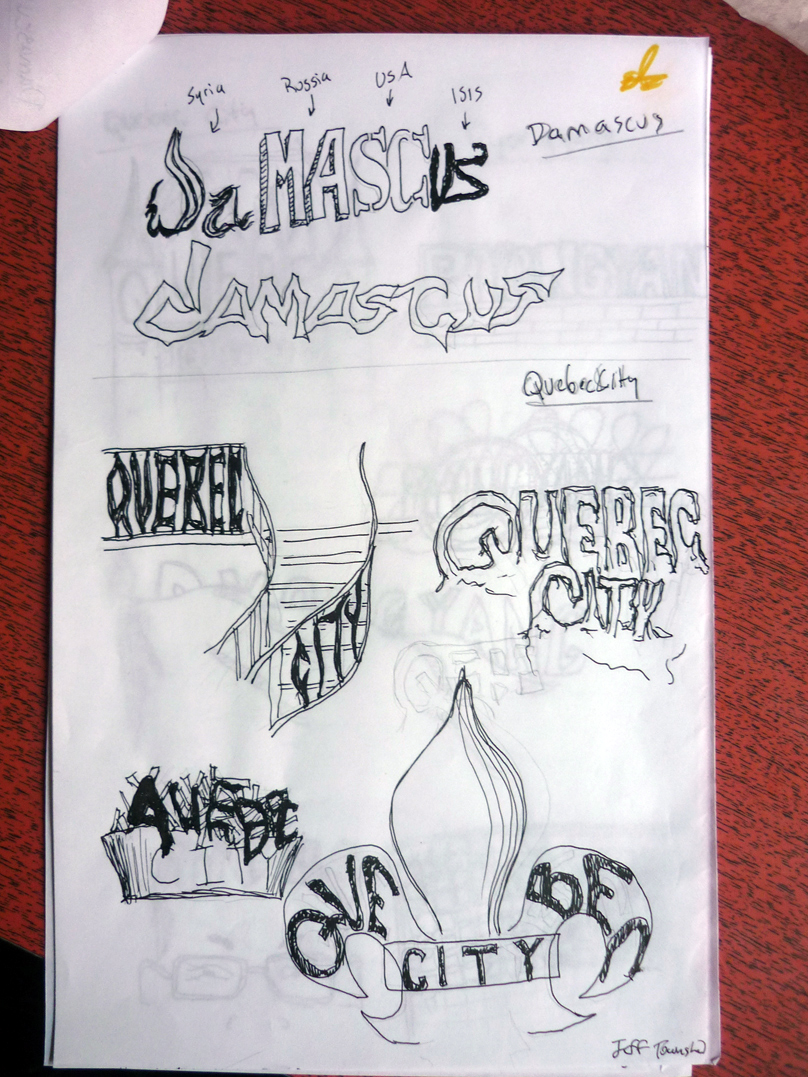 Syria Russia USA ISIS
Damascus
DaMASCUS
damascus
Quebec City
QUEBEC
CITY
QUEBEC
CITY
QUEBEC
CITY
QUE BEC
CITY
Jeff